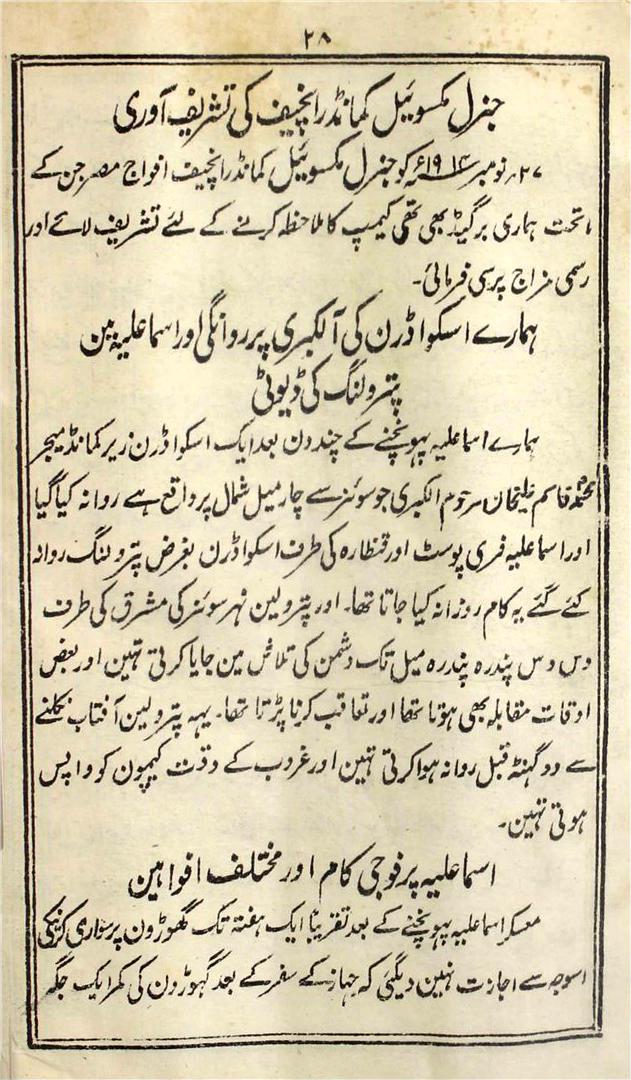 ۲۸
جنرل مکسوئیل کمانڈر انچیف کی تشریف آوری
۲۷؍ نومبر ۱۹۱۴ء کو جنرل مکسوئیل کمانڈر انچیف افواج مصر جن کے
ماتحت ہماری برگیڈ بھی تھی کیمپ کا ملاحظہ کرنے کے لئے تشریف لائے اور
رسمی مزاج پرسی فرمائی۔
ہمارے اسکواڈرن کی آلکبری پر روانگی اور اسماعلیہ مین
پترولنگ کی ڈیوٹی
ہمارے اسماعلیہ پہونچنے کے چند دن بعد ایک اسکواڈرن زیر کمانڈ میجر
محمد قاسم علیخان مرحوم الکبری جو سوئز سے چار میل شمال پر واقع ہے روانہ کیا گیا
اور اسماعلیہ فری پوسٹ اور قنطارہ کی طرف اسکواڈرن بغرض پترولنگ روانہ
کئے گئے یہ کام روزانہ کیا جاتا تھا۔ اور پترولین نہر سوئز کی مشرق کی طرف
دس دس پندرہ پندرہ میل تک دشمن کی تلاش مین جایا کرتی تہین اور بعض
اوقات مقابلہ بھی ہوتا تھا اور تعاقب کرنا پڑتا تھا۔ یہہ پترولین آفتاب نکلنے
سے دو گہنٹہ قبل روانہ ہوا کرتی تہین اور غروب کے وقت کیمپون کو واپس
ہوتی تہین۔
اسماعلیہ پر فوجی کام اور مختلف افواہین
معسکر اسماعلیہ پہونچنے کے بعد تقریباً ایک ہفتہ تک گھوڑون پر سواری کرنیکی
اسوجہ سے اجازت نہین دیگئی کہ جہاز کے سفر کے بعد گہوڑون کی کمر ایک جگہ